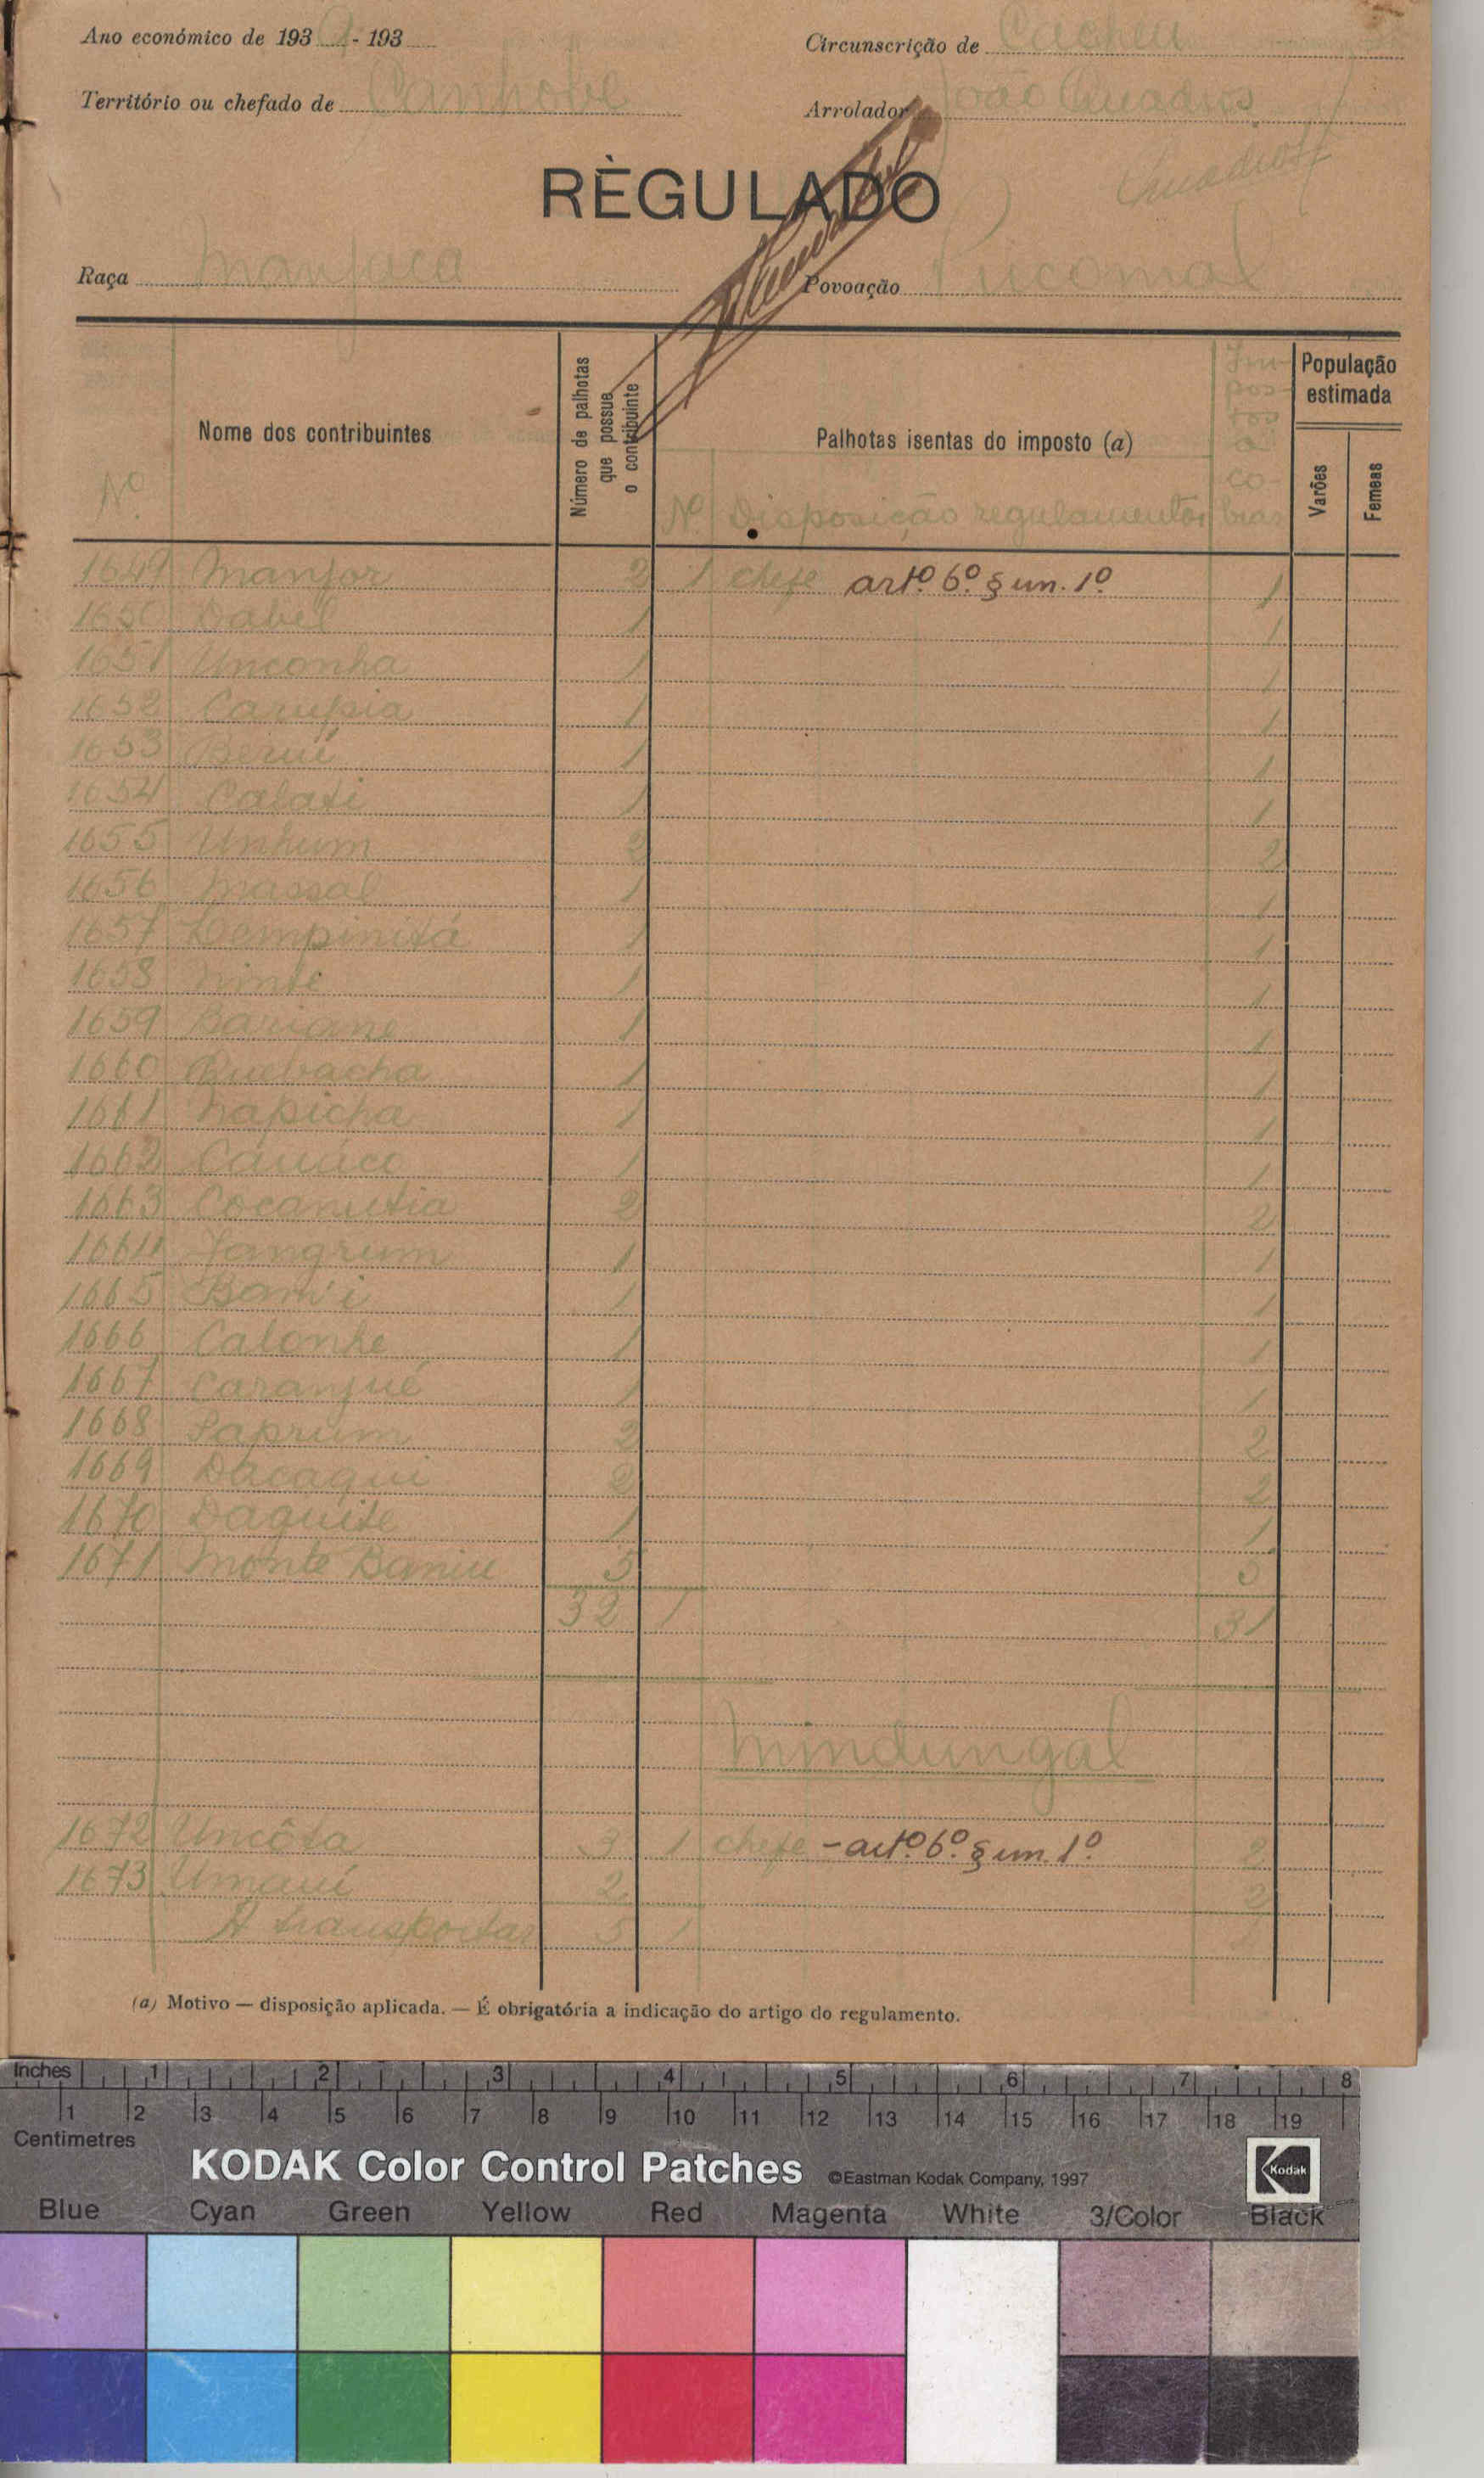 Ano económico de 193 - 193
Circunscrição de Cacheu
Território ou chefado de Canhobe
Arrolador João Quadros
Quadros
RÈGULADO
Raça Manjaca
Povoação Pucomal
Nº
Nome dos contribuintes
Número de palhotas que possue o contribuinte
Palhotas isentas do imposto (a)
Nº Disposição regulamentar
Impostos a cobrar
População estimada
Varões
Femeas
1649 Manjor 2 1 chefe artº. 6º. § un. 1º 1
1650 Dabél 1 1
1651 Unconha 1 1
1652 Carupia 1 1
1653 Beruí 1 1
1654 Calati 1 1
1655 Unhum 2 2
1656 Massal 1 1
1657 Dempinitá 1 1
1658 Ninte 1 1
1659 Bariane 1 1
1660 Quebacha 1 1
1661 Napicha 1 1
1662 Cauáco 1 1
1663 Cocanutia 2 2
1664 Jangrum 1 1
1665 Bami 1 1
1666 Calonhe 1 1
1667 Caranjué 1 1
1668 Saprum 2 2
1669 Dacaqui 2 2
1670 Daquite 1 1
1671 Monte Baniu 5 5
32 1 31
Mindungal
1672 Uncôta 3 1 chefe - artº. 6º. § un. 1º 2
1673 Umaui 2 2
A transportar 5 1
(a) Motivo — disposição aplicada. — É obrigatória a indicação do artigo do regulamento.
Inches 1 2 3 4 5 6 7 8
1 2 3 4 5 6 7 8 9 10 11 12 13 14 15 16 17 18 19
Centimetres
KODAK Color Control Patches ©Eastman Kodak Company, 1997 Kodak
Blue Cyan Green Yellow Red Magenta White 3/Color Black